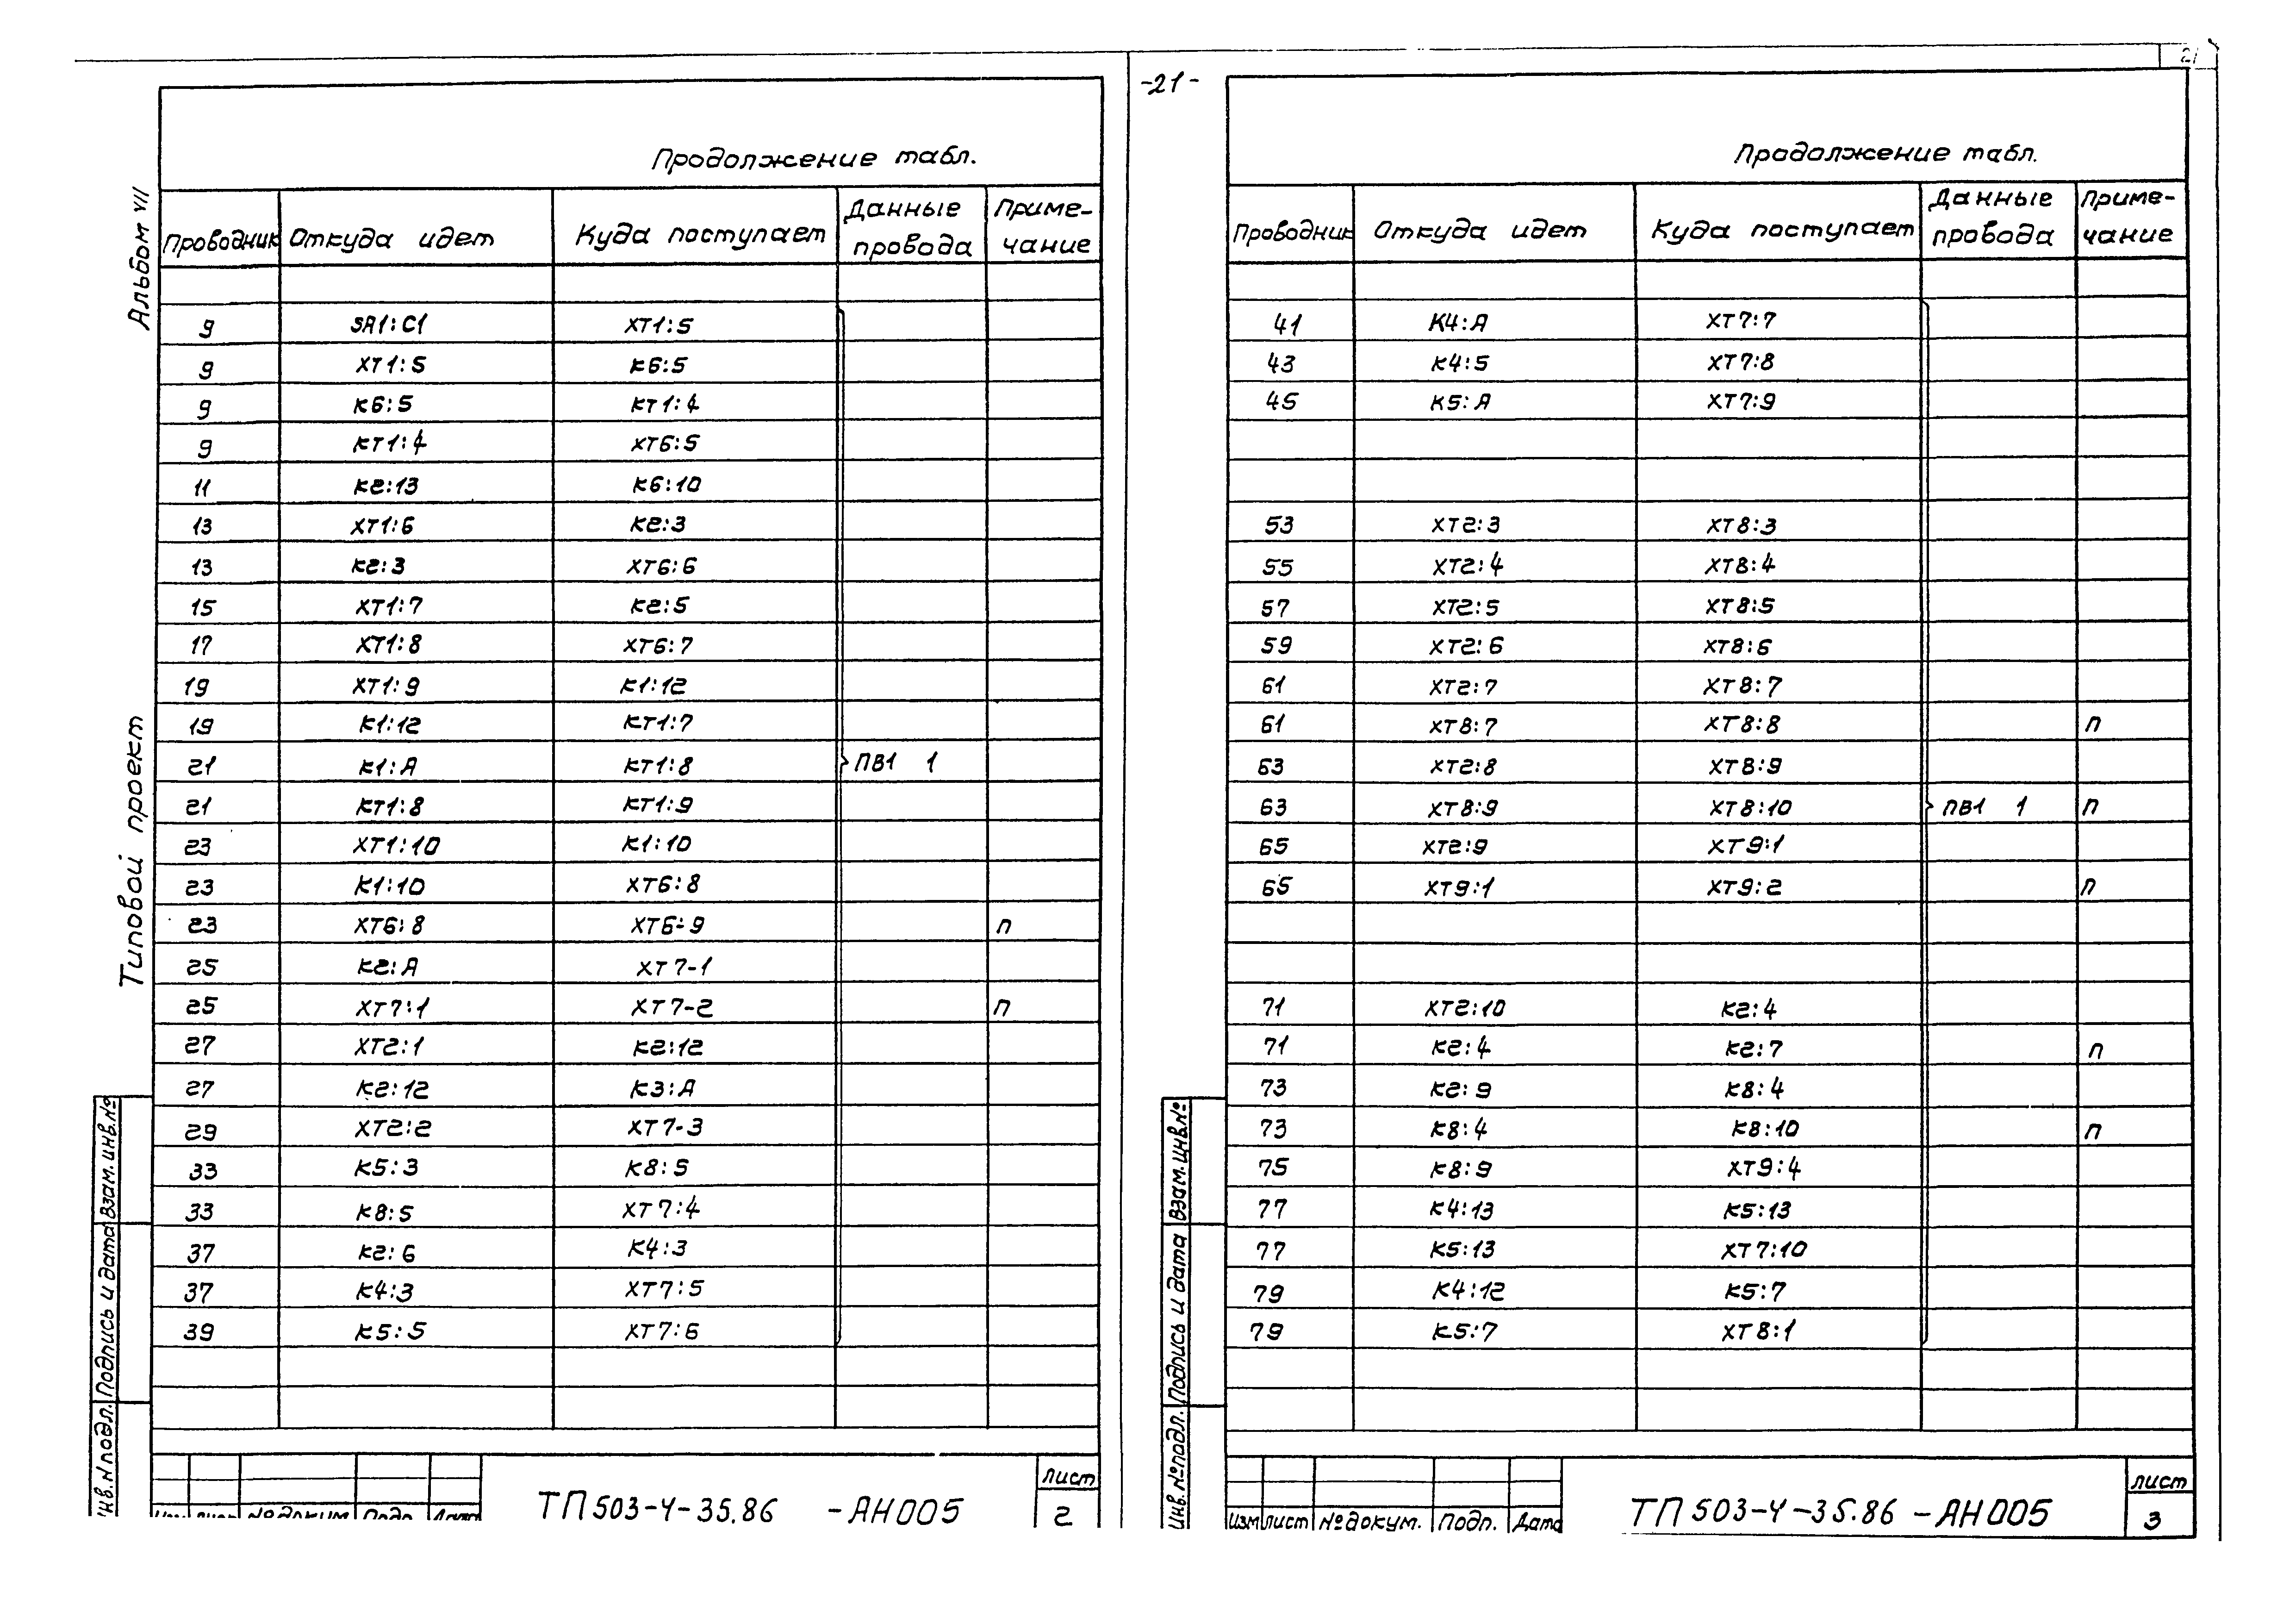 -21-
21
Альбом VII
Типовой проект
Продолжение табл.
Проводник Откуда идет Куда поступает Данные провода Приме-чание
9 SA1:C1 XT1:5
9 XT1:5 K6:5
9 K6:5 KT1:4
9 KT1:4 XT6:5
11 K2:13 K6:10
13 XT1:6 K2:3
13 K2:3 XT6:6
15 XT1:7 K2:5
17 XT1:8 XT6:7
19 XT1:9 K1:12
19 K1:12 KT1:7
21 K1:A KT1:8 ПВ1 1
21 KT1:8 KT1:9
23 XT1:10 K1:10
23 K1:10 XT6:8
23 XT6:8 XT6-9 П
25 K2:A XT7-1
25 XT7:1 XT7-2 П
27 XT2:1 K2:12
27 K2:12 K3:A
29 XT2:2 XT7-3
33 K5:3 K8:5
33 K8:5 XT7:4
37 K2:6 K4:3
37 K4:3 XT7:5
39 K5:5 XT7:6
Взам.инв.№
Подпись и дата
Инв.N подл.
Изм лист №докум. Подп. Дата
ТП 503-4-35.86 -АН005
лист
2
Продолжение табл.
Проводник Откуда идет Куда поступает Данные провода Приме-чание
41 K4:A XT7:7
43 K4:5 XT7:8
45 K5:A XT7:9
53 XT2:3 XT8:3
55 XT2:4 XT8:4
57 XT2:5 XT8:5
59 XT2:6 XT8:6
61 XT2:7 XT8:7
61 XT8:7 XT8:8 П
63 XT2:8 XT8:9
63 XT8:9 XT8:10 ПВ1 1 П
65 XT2:9 XT9:1
65 XT9:1 XT9:2 П
71 XT2:10 K2:4
71 K2:4 K2:7 П
73 K2:9 K8:4
73 K8:4 K8:10 П
75 K8:9 XT9:4
77 K4:13 K5:13
77 K5:13 XT7:10
79 K4:12 K5:7
79 K5:7 XT8:1
Взам.инв.№
Подпись и дата
Инв.№подл.
Изм лист №докум. Подп. Дата
ТП 503-4-35.86 -АН005
лист
3